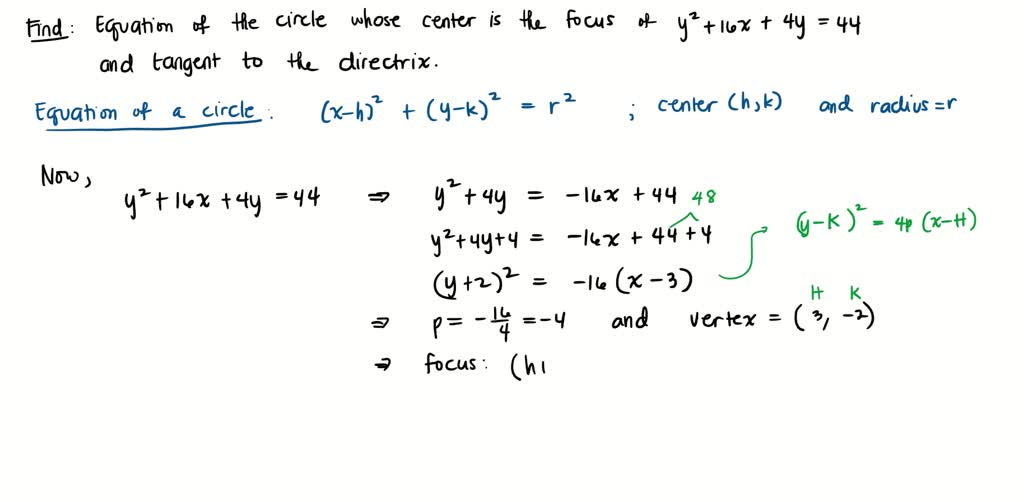 Find: Equation of the circle whose center is the focus of y² + 16x + 4y = 44
and tangent to the directrix.
Equation of a circle: (x-h)² + (y-k)² = r² ; center (h,k) and radius = r
Now,
y² + 16x + 4y = 44 ⇒ y² + 4y = -16x + 44 48
y² + 4y + 4 = -16x + 44 + 4 (y-K)² = 4p (x-H)
(y+2)² = -16 (x-3)
H K
⇒ p = -16/4 = -4 and vertex = (3, -2)
⇒ focus: (h